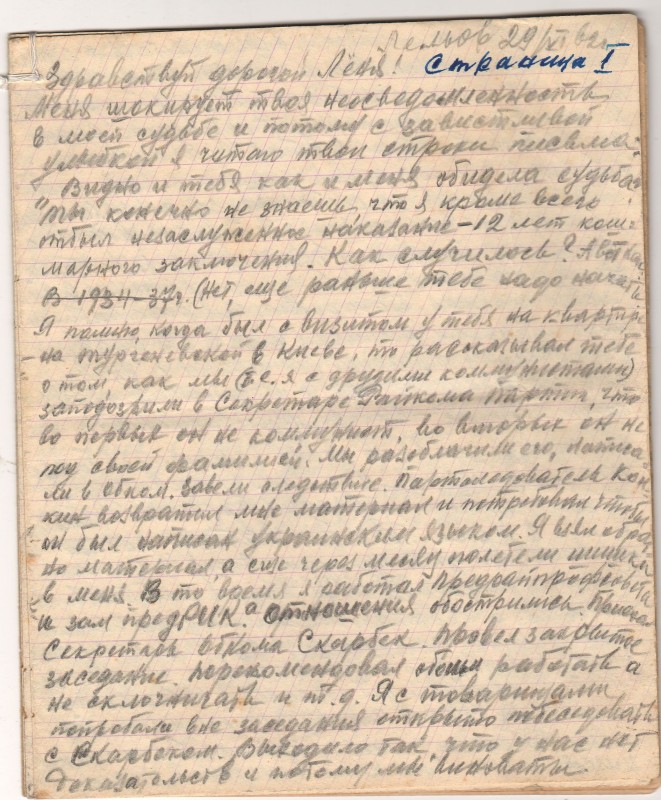 29/XI
Страница I
Здравствуй дорогой Лёня!
Меня шокирует твоя неосведомленность
в моей судьбе и потому с завистливой
улыбкой я читаю твои строки письма:
"Видно и тебя как и меня обидела судьба"
Ты конечно не знаешь что я кроме всего
отбыл незаслуженное наказание – 12 лет кош-
марного заключения. Как случилось? А вот
В 1934-37г. (нет, еще раньше тебе надо начать
Я помню, когда был с визитом у тебя на квартире
на тургеневской в Киеве, то рассказывал тебе
о том, как мы (т.е. я с другими коммунистами)
заподозрили в Секретаре Райкома партии, что
во первых он не коммунист, во вторых он не
под своей фамилией. Мы разоблачили его, написа-
ли в обком. Завели следствие. Партследователь
возвратил мне материал и потребовал чтобы
он был написан украинским языком. Я взял обрат-
но материал а еще через месяц полетели шишки
в меня В то время я работал Предрайпрофсовета
и зам предРИКа. отношения обострились. Приехал
секретарь обкома Скарбек. Провел закрытое
заседание. Порекомендовал обоим работать а
не склочничать и т.д. Я с товарищами
попробовали вне заседания открыто побеседовать
с Скарбеком. Выходило так что у нас нет
доказательств и потому мы виноваты.